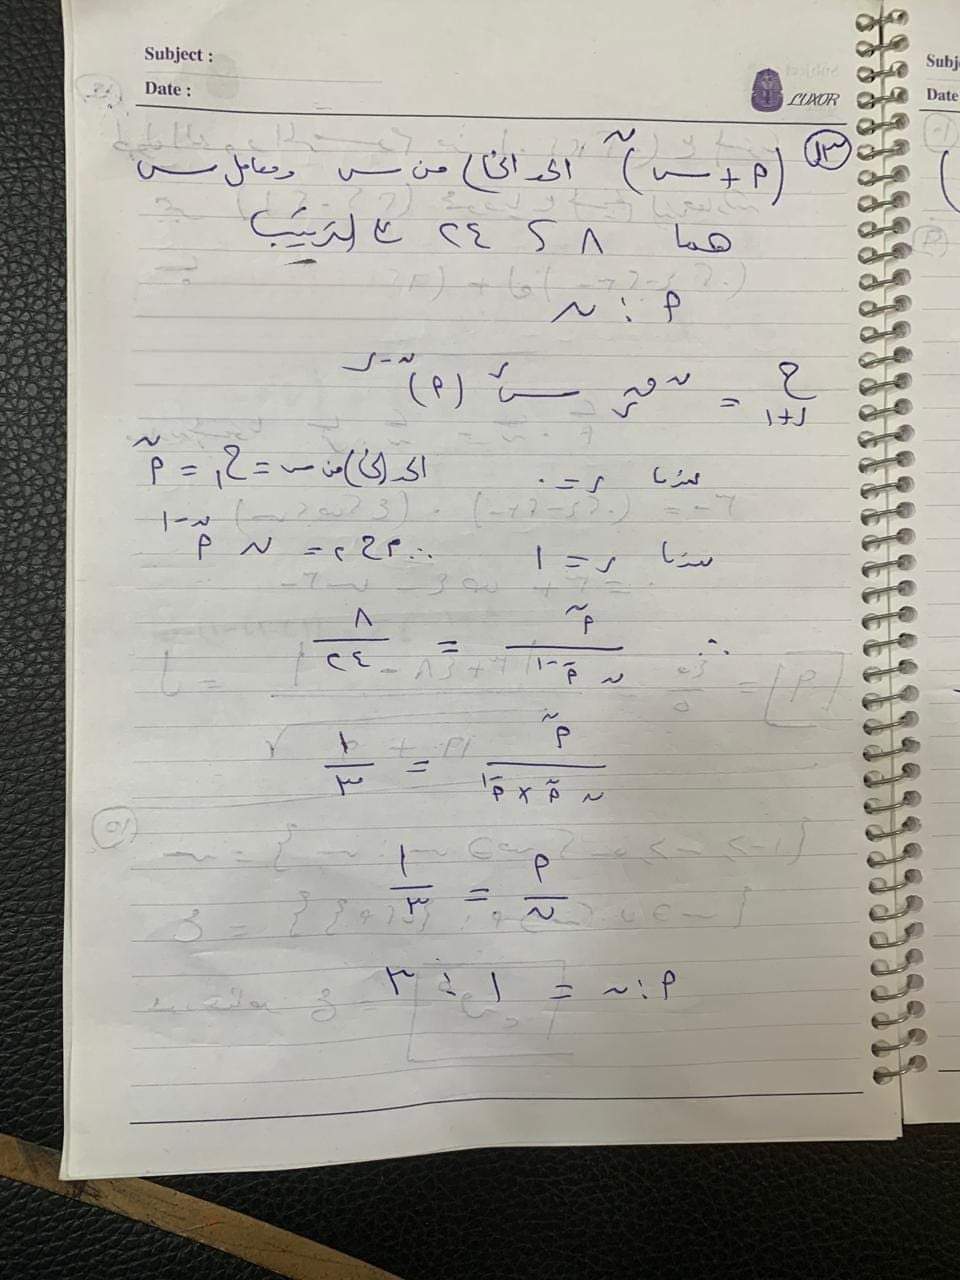 Subject :
Date :
LUXOR
Subj
Date
١٣ (م + س)^ن الحد الخالي من س ومعامل س
هما ٨ ، ٢٤ على الترتيب
م : ن
ح ر+١ = ن ق ر س^ر (م)^ن-ر
عندما ر = ٠ الحد الخالي من س = ح١ = م^ن
عندما ر = ١ ∴ م ح٢ = ن م^ن-١
∴ م^ن / ن م^ن-١ = ٨ / ٢٤
م^ن / ن م^ن × م^-١ = ١ / ٣
م / ن = ١ / ٣
م : ن = ١ : ٣